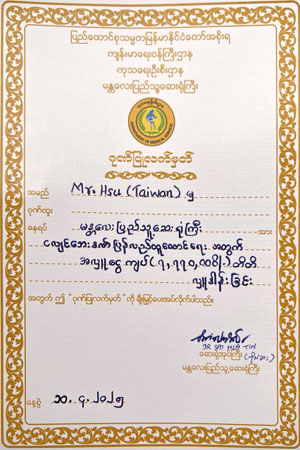 ပြည်ထောင်စုသမ္မတမြန်မာနိုင်ငံတော်အစိုးရ
ကျန်းမာရေးဝန်ကြီးဌာန
ကုသရေးဦးစီးဌာန
မန္တလေးပြည်သူ့ဆေးရုံကြီး
DEPARTMENT OF MEDICAL SERVICES
ဂုဏ်ပြုလတ်မှတ်
အမည် Mr. Hsu (Taiwan) မှ
ဂုဏ်ထူး
နေရပ် မန္တလေးပြည်သူ့ဆေးရုံကြီး အား
ငလျင်ဘေးဒဏ် ပြန်လည်ထူထောင်ရေး အတွက်
အလှူငွေ ကျပ် (၇,၇၇၀,၀၀၀ိ/) တိတိ
လှူဒါန်းခြင်း
အတွက် ဤ "ဂုဏ်ပြုလက်မှတ်" ကို ချီးမြှင့်ပေးအပ်လိုက်ပါသည်။
ဆေးရုံအုပ်ကြီး
မန္တလေးပြည်သူ့ဆေးရုံကြီး
နေ့စွဲ ၁၁.၄.၂၀၂၅